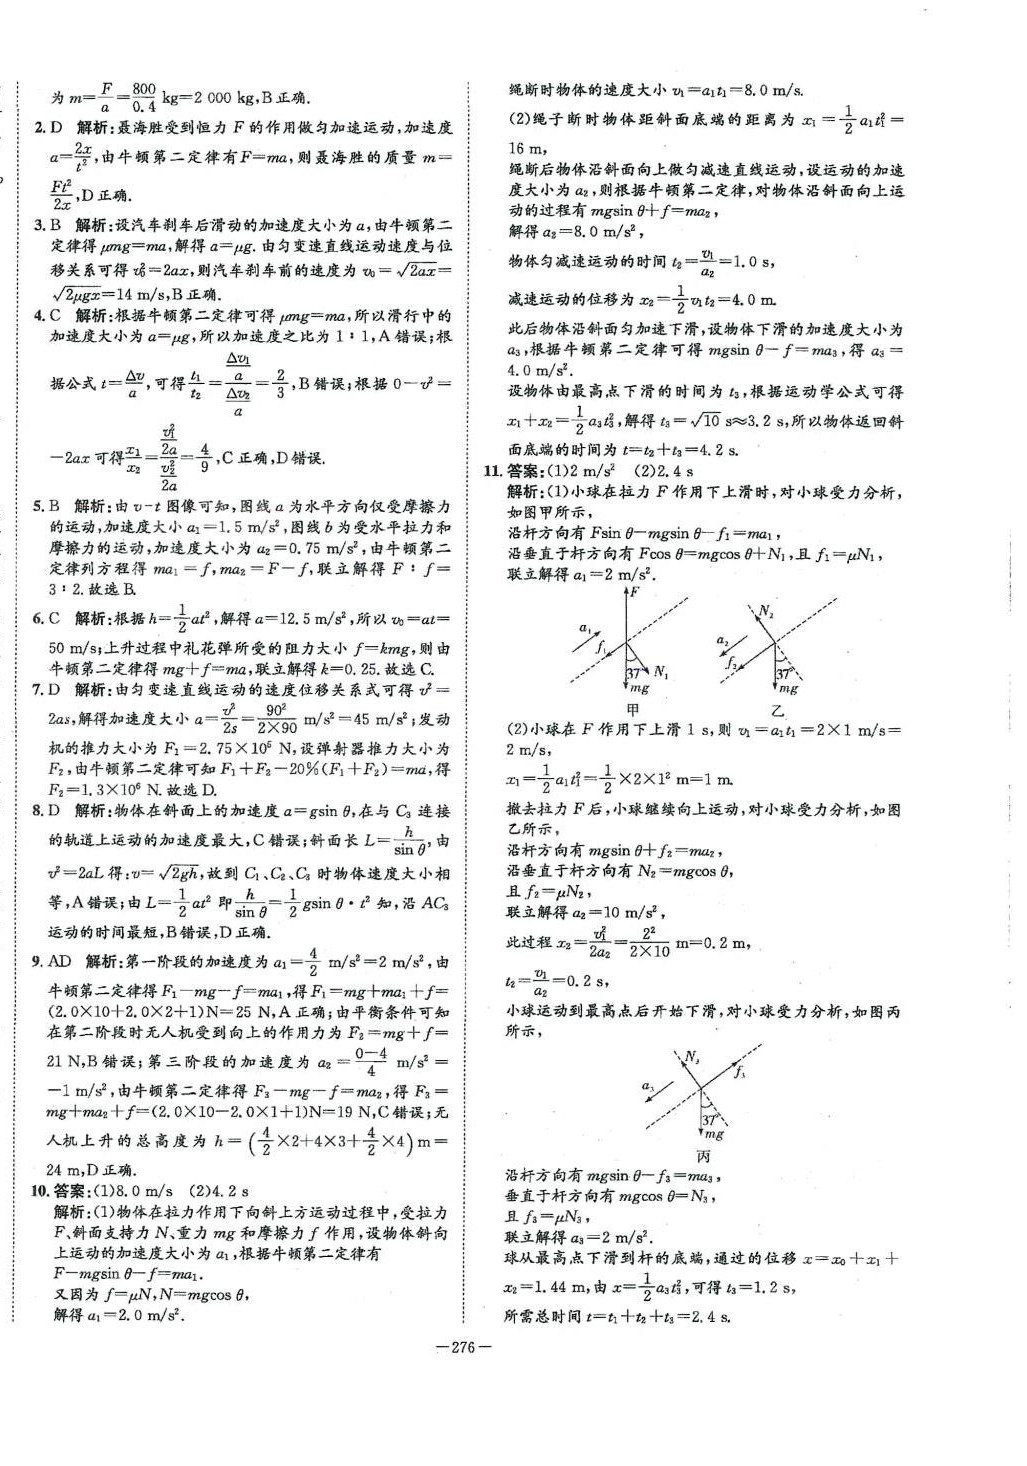 为 m=F/a=800/0.4 kg=2 000 kg,B正确.
2. D 解析:聂海胜受到恒力 F 的作用做匀加速运动,加速度
a=2x/t²,由牛顿第二定律有F=ma,则聂海胜的质量 m=
Ft²/2x,D正确.
3. B 解析:设汽车刹车后滑动的加速度大小为 a,由牛顿第二
定律得 μmg=ma,解得 a=μg.由匀变速直线运动速度与位
移关系可得 v₀²=2ax,则汽车刹车前的速度为 v₀=√2ax=
√2μgx=14 m/s,B正确.
4. C 解析:根据牛顿第二定律可得 μmg=ma,所以滑行中的
加速度大小为 a=μg,所以加速度之比为 1∶1,A错误;根
据公式 t=Δv/a,可得 t₁/t₂=(Δv₁/a)/(Δv₂/a)=2/3,B错误;根据 0-v²=
-2ax 可得 x₁/x₂=(v₁²/2a)/(v₂²/2a)=4/9,C正确,D错误.
5. B 解析:由 v-t 图像可知,图线 a 为水平方向仅受摩擦力
的运动,加速度大小 a₁=1.5 m/s²,图线 b 为受水平拉力和
摩擦力的运动,加速度大小为 a₂=0.75 m/s²,由牛顿第二
定律列方程得 ma₁=f,ma₂=F-f,联立解得 F∶f=
3∶2.故选B.
6. C 解析:根据 h=1/2 at²,解得 a=12.5 m/s²,所以 v₀=at=
50 m/s;上升过程中礼花弹所受的阻力大小 f=kmg,则由
牛顿第二定律得 mg+f=ma,联立解得 k=0.25.故选C.
7. D 解析:由匀变速直线运动的速度位移关系式可得 v²=
2as,解得加速度大小 a=v²/2s=90²/(2×90) m/s²=45 m/s²;发动
机的推力大小为 F₁=2.75×10⁶ N,设弹射器推力大小为
F₂,由牛顿第二定律可知 F₁+F₂-20%(F₁+F₂)=ma,得
F₂=1.3×10⁶ N.故选D.
8. D 解析:物体在斜面上的加速度 a=gsin θ,在与 C₃ 连接
的轨道上运动的加速度最大,C错误;斜面长 L=h/sin θ,由
v²=2aL 得:v=√2gh,故到 C₁、C₂、C₃ 时物体速度大小相
等,A错误;由 L=1/2 at² 即 h/sin θ=1/2 gsin θ·t² 知,沿 AC₃
运动的时间最短,B错误,D正确.
9. AD 解析:第一阶段的加速度为 a₁=4/2 m/s²=2 m/s²,由
牛顿第二定律得F₁-mg-f=ma₁,得F₁=mg+ma₁+f=
(2.0×10+2.0×2+1)N=25 N,A正确;由平衡条件可知
在第二阶段时无人机受到向上的作用力为 F₂=mg+f=
21 N,B错误;第三阶段的加速度为 a₂=(0-4)/4 m/s²=
-1 m/s²,由牛顿第二定律得 F₃-mg-f=ma₂,得 F₃=
mg+ma₂+f=(2.0×10-2.0×1+1)N=19 N,C错误;无
人机上升的总高度为 h=(4/2×2+4×3+4/2×4)m=
24 m,D正确.
10. 答案:(1)8.0 m/s (2)4.2 s
解析:(1)物体在拉力作用下向斜上方运动过程中,受拉力
F、斜面支持力 N、重力 mg 和摩擦力 f 作用,设物体斜向
上运动的加速度大小为 a₁,根据牛顿第二定律有
F-mgsin θ-f=ma₁.
又因为 f=μN,N=mgcos θ,
解得 a₁=2.0 m/s².
绳断时物体的速度大小 v₁=a₁t₁=8.0 m/s.
(2)绳子断时物体距斜面底端的距离为 x₁=1/2 a₁t₁²=
16 m,
绳断后物体沿斜面向上做匀减速直线运动,设运动的加速
度大小为 a₂,则根据牛顿第二定律,对物体沿斜面向上运
动的过程有 mgsin θ+f=ma₂,
解得 a₂=8.0 m/s²,
物体匀减速运动的时间 t₂=v₁/a₂=1.0 s,
减速运动的位移为 x₂=1/2 v₁t₂=4.0 m.
此后物体沿斜面匀加速下滑,设物体下滑的加速度大小为
a₃,根据牛顿第二定律可得 mgsin θ-f=ma₃,得 a₃=
4.0 m/s².
设物体由最高点下滑的时间为 t₃,根据运动学公式可得
x₁+x₂=1/2 a₃t₃²,解得 t₃=√10 s≈3.2 s,所以物体返回斜
面底端的时间为 t=t₂+t₃=4.2 s.
11. 答案:(1)2 m/s² (2)2.4 s
解析:(1)小球在拉力 F 作用下上滑时,对小球受力分析,
如图甲所示,
沿杆方向有 Fsin θ-mgsin θ-f₁=ma₁,
沿垂直于杆方向有 Fcos θ=mgcos θ+N₁,且 f₁=μN₁,
联立解得 a₁=2 m/s².
F
a₁
f₁
37°
N₁
mg
甲
N₂
a₂
f₂
37°
mg
乙
(2)小球在 F 作用下上滑 1 s,则 v₁=a₁t₁=2×1 m/s=
2 m/s,
x₁=1/2 a₁t₁²=1/2×2×1² m=1 m.
撤去拉力 F 后,小球继续向上运动,对小球受力分析,如图
乙所示,
沿杆方向有 mgsin θ+f₂=ma₂,
沿垂直于杆方向有 N₂=mgcos θ,
且 f₂=μN₂,
联立解得 a₂=10 m/s²,
此过程 x₂=v₁²/2a₂=2²/(2×10) m=0.2 m,
t₂=v₁/a₂=0.2 s,
小球运动到最高点后开始下滑,对小球受力分析,如图丙
所示,
N₃
f₃
a₃
37°
mg
丙
沿杆方向有 mgsin θ-f₃=ma₃,
垂直于杆方向有 mgcos θ=N₃,
且 f₃=μN₃,
联立解得 a₃=2 m/s².
球从最高点下滑到杆的底端,通过的位移 x=x₀+x₁+
x₂=1.44 m,由 x=1/2 a₃t₃²,可得 t₃=1.2 s,
所需总时间 t=t₁+t₂+t₃=2.4 s.
—276—